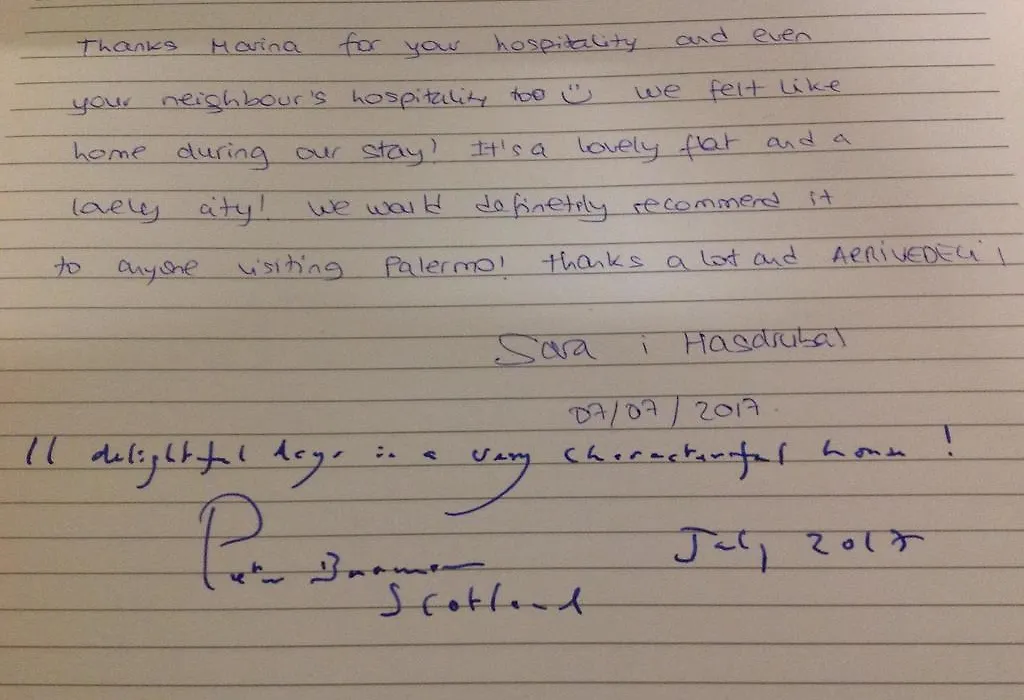 Thanks Marina for your hospitality and even
your neighbour's hospitality too :) we felt like
home during our stay! It's a lovely flat and a
lovely city! We would definetily recommend it
to anyone visiting Palermo! thanks a lot and ARRIVEDECI!
Sara i Hasdrubal
07/07/2017.
11 delightful days in a very characterful home!
Peter
Scotland
July 2017